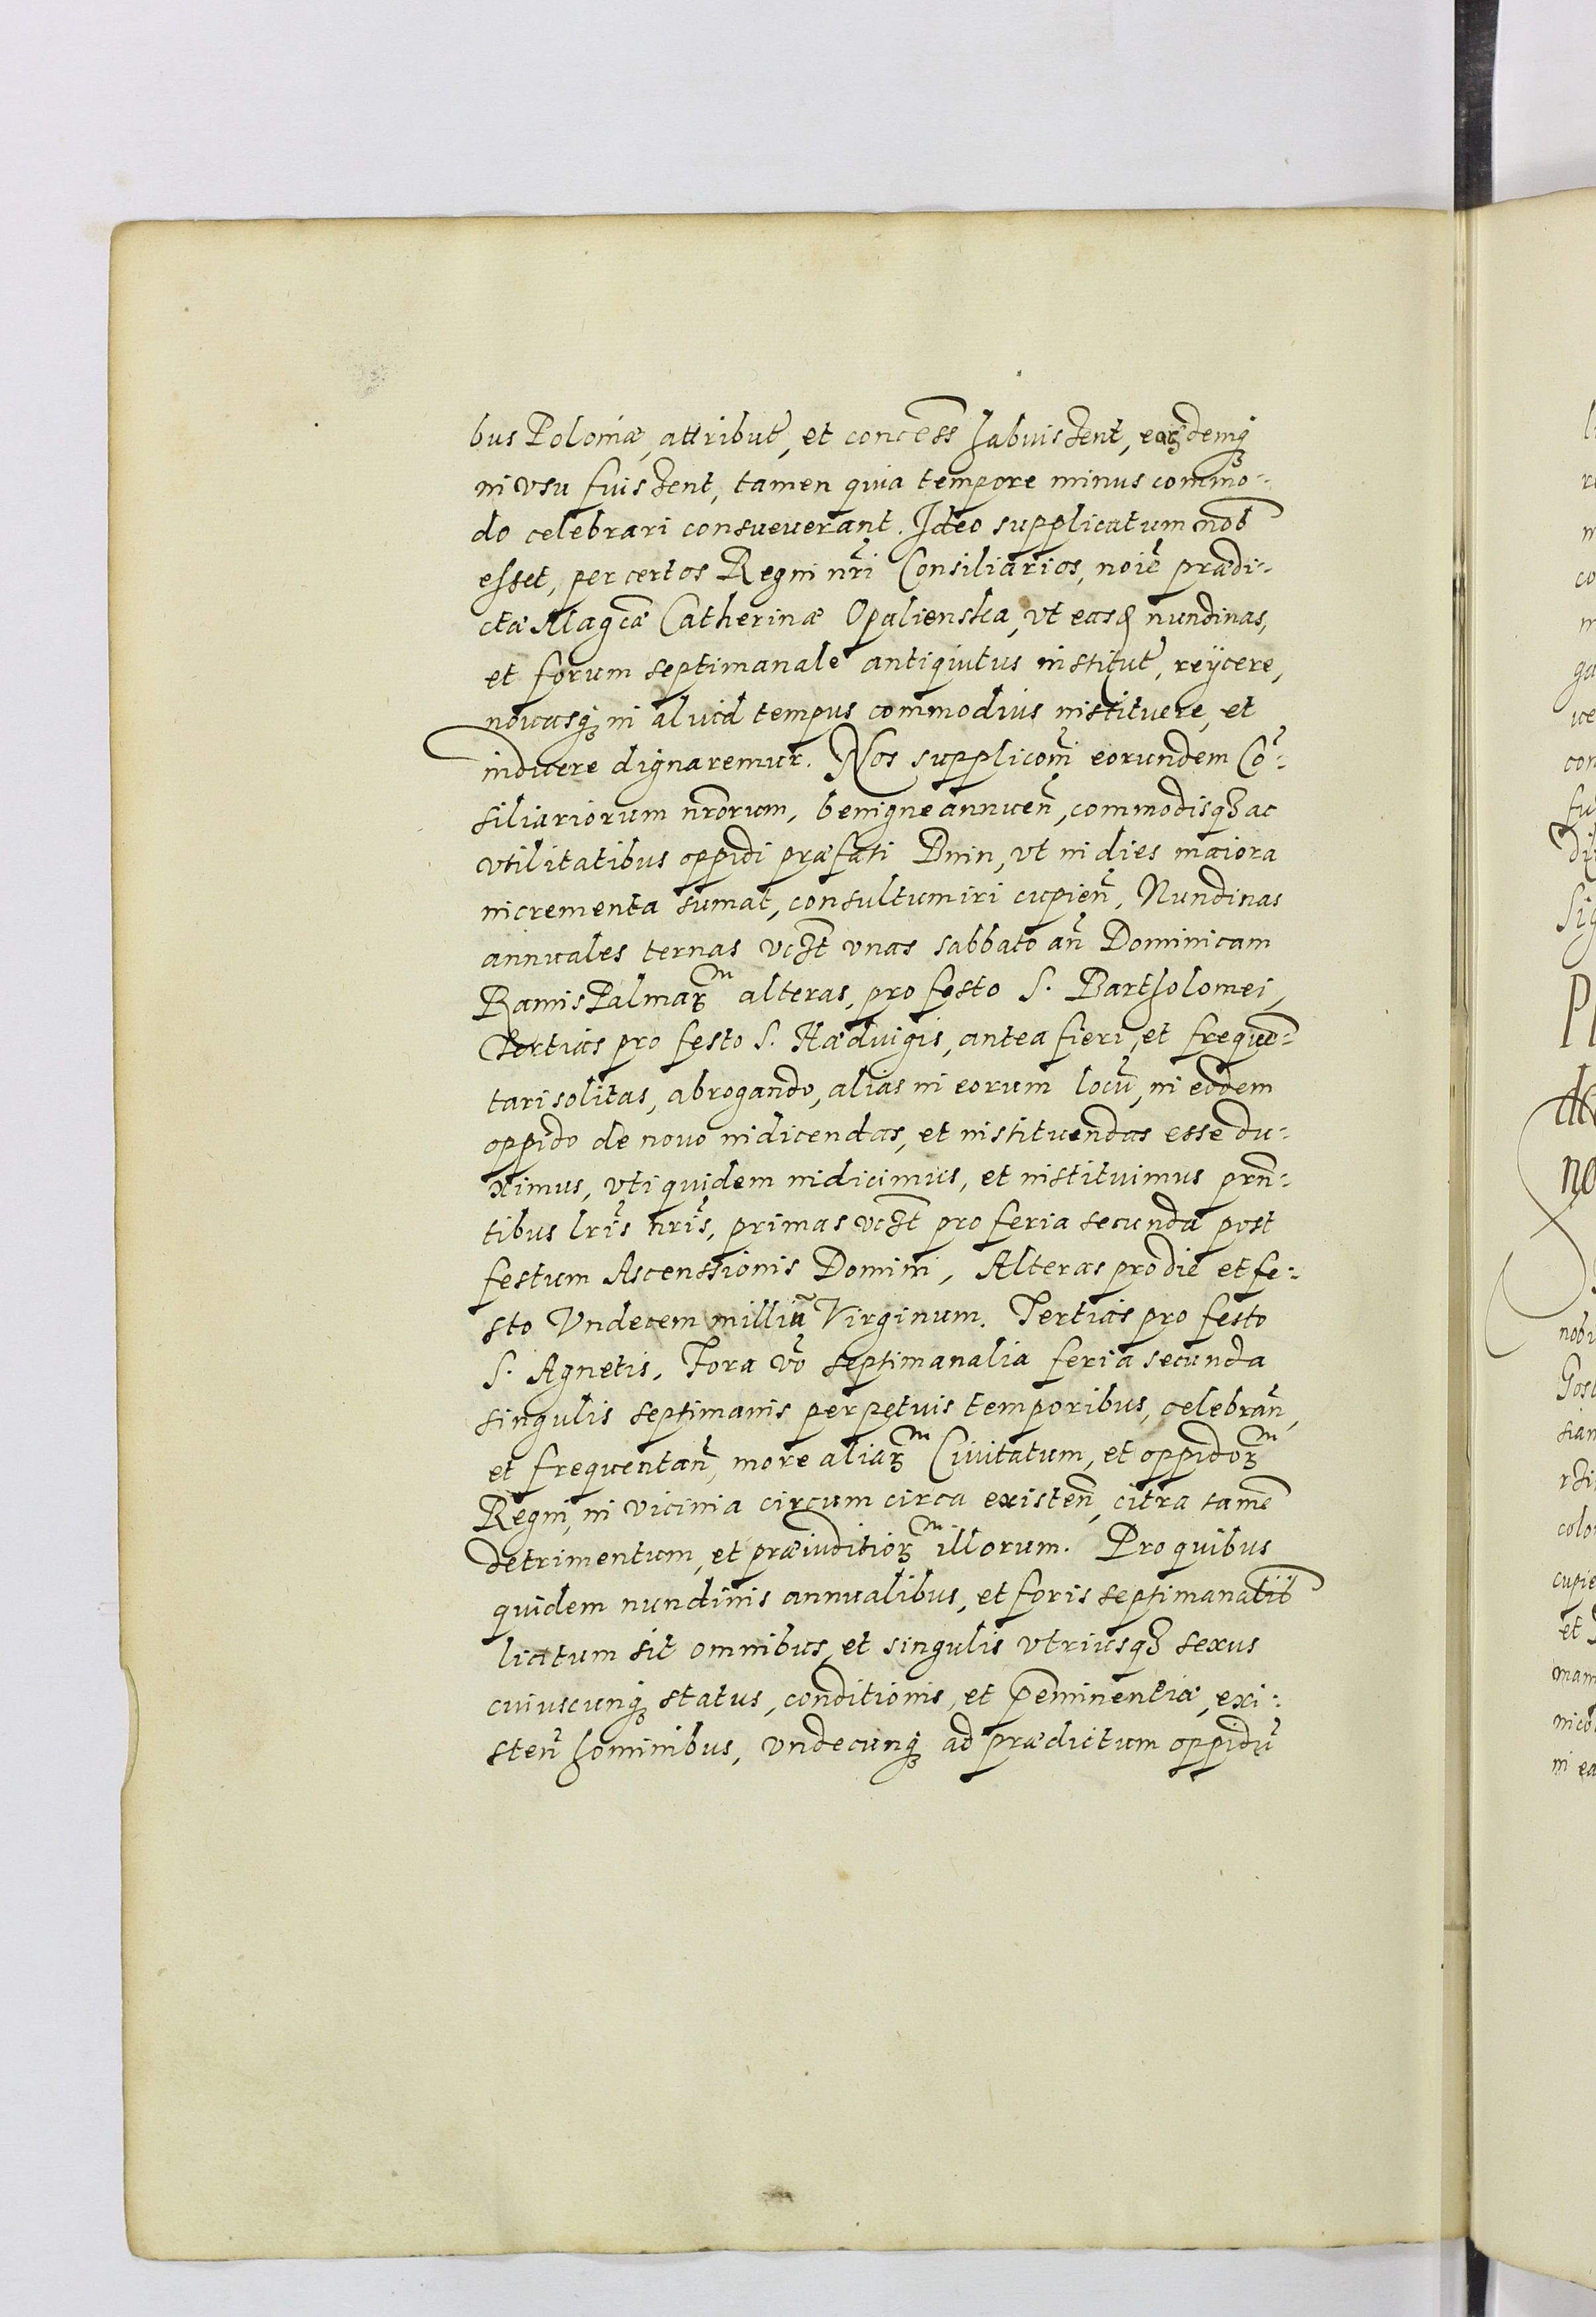 bus Poloniæ, attribut̃, et concess̃ habuissent, earũdemq́
in vsu fuissent, tamen quia tempore minus commo-
do celebrari consueuerant. Ideo supplicatum nob̃
esset, per certos Regni nr̃i Consiliarios, noiẽ prædi-
ctæ Magcæ Catherinæ Opalienska, vt easd̃ nundinas,
et forum septimanale antiquitus institut̃, reÿcere,
nouasq́ in aliud tempus commodius instituere, et
induere dignaremur. Nos supplicoñi eorundem Cõ-
siliariorum nr̃orum, benigne annueñ, commodisqȝ ac
vtilitatibus oppidi præfati Bnin, vt in dies maiora
incrementa sumat, consultum iri cupieñ, Nundinas
annuales ternas vclt̃ vnas sabbato añ Dominicam
Ramis Palmaꝝᵐ alteras, pro festo S. Bartholomei,
Tertias pro festo S. Hæduigis, antea fieri, et frequẽ-
tari solitas, abrogando, alias in eorum locũ, in eodem
oppido de nouo indicendas, et instituendas esse du-
ximus, vti quidem indicimus, et instituimus prñ-
tibus lr̃is nr̃is, primas vclt̃ pro feria secunda post
festum Ascensionis Domini, Alteras pro die et fe-
sto Vndecem milliũ Virginum. Tertias pro festo
S. Agnetis, Fora võ septimanalia feria secunda
singulis septimanis perpetuis temporibus, celebrañ,
et frequentañ, more aliaꝝᵐ Ciuitatum, et oppidoꝝᵐ
Regni, in vicinia circum circa existeñ, citra tamẽ
detrimentum, et præiuditioꝝᵐ illorum. Pro quibus
quidem nundinis annualibus, et foris septimanalib̃
licitum sit omnibus, et singulis vtriusqȝ sexus
cuiuscunq́ status, conditionis, et p̃eminentiæ, exi-
steñ hominibus, vndecunq́ ad prædictum oppidũ